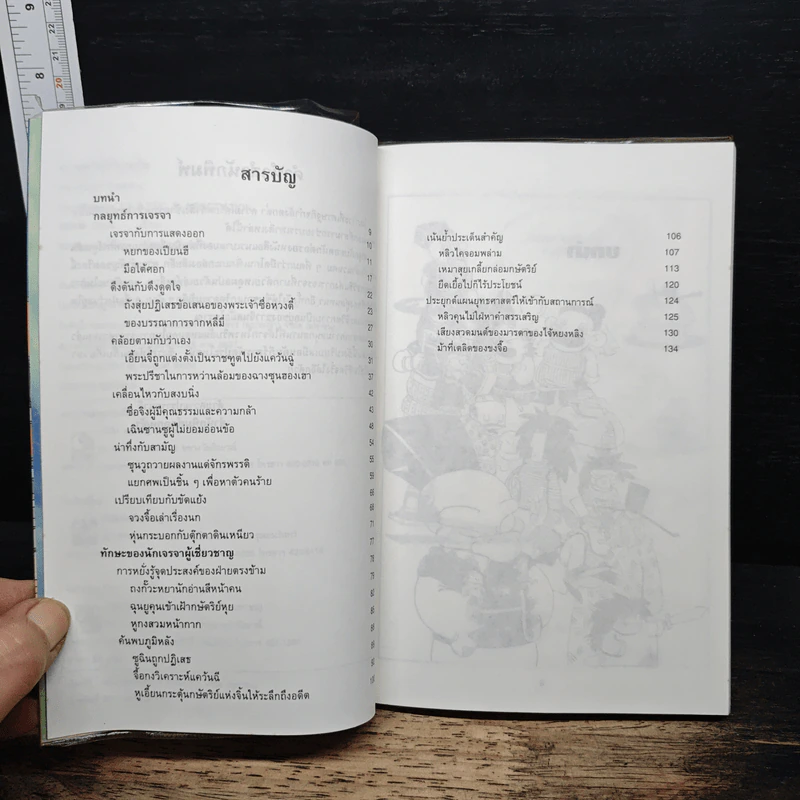 8
9
20
21
22
สารบัญ
บทนำ
กลยุทธ์การเจรจา 9
เจรจากับการแสดงออก 10
หยกของเปียนฮี 11
มีอได้ศอก 17
ดึงดันกับดึงดูดใจ 22
ถังสุ่ยปฏิเสธข้อเสนอของพระเจ้าชื่อหวงตี้ 23
ของบรรณาการจากหลี่มี่ 27
คล้อยตามกับว่าเอง 30
เอี้ยนจี้ถูกแต่งตั้งเป็นราชฑูตไปยังแคว้นฉู่ 31
พระปรีชาในการหว่านล้อมของฉางซุนฮองเฮา 37
เคลื่อนไหวกับสงบนิ่ง 42
ซื่อจิงผู้มีคุณธรรมและความกล้า 43
เฉินซานซูผู้ไม่ยอมอ่อนข้อ 48
น่าทึ่งกับสามัญ 54
ซุนวูถวายผลงานแด่จักรพรรดิ 55
แยกศพเป็นชิ้น ๆ เพื่อหาตัวคนร้าย 60
เปรียบเทียบกับขัดแย้ง
จวงจื้อเล่าเรื่องนก
หุ่นกระบอกกับตุ๊กตาดินเหนียว
ทักษะของนักเจรจาผู้เชี่ยวชาญ
การหยั่งรู้จุดประสงค์ของฝ่ายตรงข้าม
ถงกั๊วะหยานักอ่านสีหน้าคน
ฉุนยูคุนเข้าเฝ้ากษัตริย์หุย
หูกงสวมหน้ากาก
ค้นพบภูมิหลัง
ซูฉินถูกปฏิเสธ
จื้อกงวิเคราะห์แคว้นฉี
หูเอี้ยนกระตุ้นกษัตริย์แห่งจิ้นให้ระลึกถึงอดีต
เน้นย้ำประเด็นสำคัญ 106
หลิวไคจอมพล่าม 107
เหมาสุยเกลี้ยกล่อมกษัตริย์ 113
ยึดเยื้อไปก็ไร้ประโยชน์ 120
ประยุกต์แผนยุทธศาสตร์ให้เข้ากับสถานการณ์ 124
หลิวคุนไม่ไฝ่หาคำสรรเสริญ 125
เสียงสวดมนต์ของมารดาของไจ้หยงหลิง 130
ม้าที่เตลิดของขงจื้อ 134